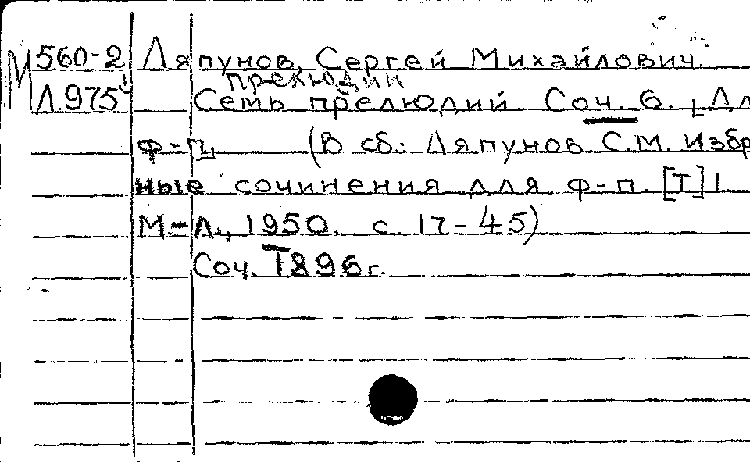 М 560-2 Ляпунов, Сергей Михайлович.
прелюдии
Л 975 Семь прелюдий Соч. 6. [Дл
ф-п] (В сб.: Ляпунов С.М. Избр
ные сочинения для ф-п. [Т] 1
М-Л., 1950. с. 17-45)
Соч. 1896 г.